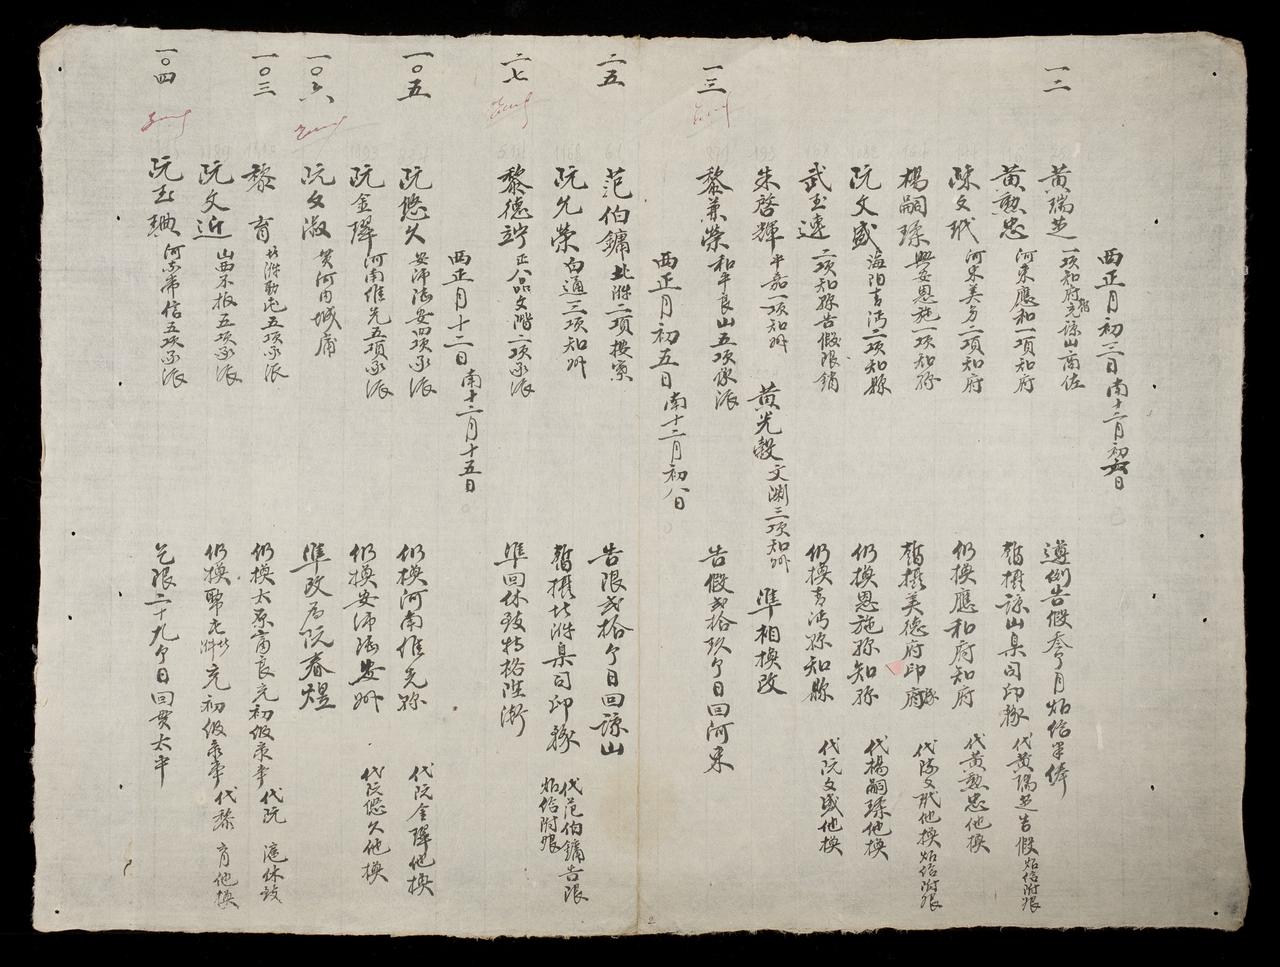 西正月初三日南十二月初六日
一二
黃瑞芝 一項知府充諒山商佐 遵例告假叁个月炤給半俸
黃勲忠 河東應和一項知府 暫攝諒山臬司印務 代黃瑞芝告假炤給附銀
陳文珖 河東美多二項知府 仍換應和府知府 代黃勲忠他換
楊嗣瑈 興安恩施一項知縣 暫攝美德府印務 代陳文珖他換炤給附銀
阮文盛 海陽青沔二項知縣 仍換恩施縣知縣 代楊嗣瑈他換
武玉連 二項知縣告假限銷 仍換青沔縣知縣 代阮文盛他換
朱啓輝 平嘉一項知州 黃光毅 文淵三項知州 準相換改
一三
黎兼榮 和平良山五項承派 告假弍拾玖个日回河東
西正月初五日南十二月初八日
二五
范伯鏞 北𣴓二項按察 告限弍拾个日回諒山
阮允榮 白通三項知州 暫攝北𣴓臬司印務 代范伯鏞告限炤給附銀
二七
黎德竚 正八品文階二項承派 準回休致特格陞漸
西正月十二日南十二月十五日
一〇五
阮悠久 安沛陸安四項承派 仍換河南維先縣 代阮金鐸他換
阮金鐸 河南維先五項承派 仍換安沛陸安州 代阮悠久他換
一〇六
阮文淑 貫河內城庸 準改爲阮春煜
一〇三
黎育 北𣴓勸屯五項承派 仍換太原富良充初級彔事 代阮 還休致
阮文近 山西不拔五項承派 充初級彔事 代黎育他換
一〇四
阮玉珊 河東常信五項承派 乞限二十九个日回貫太平